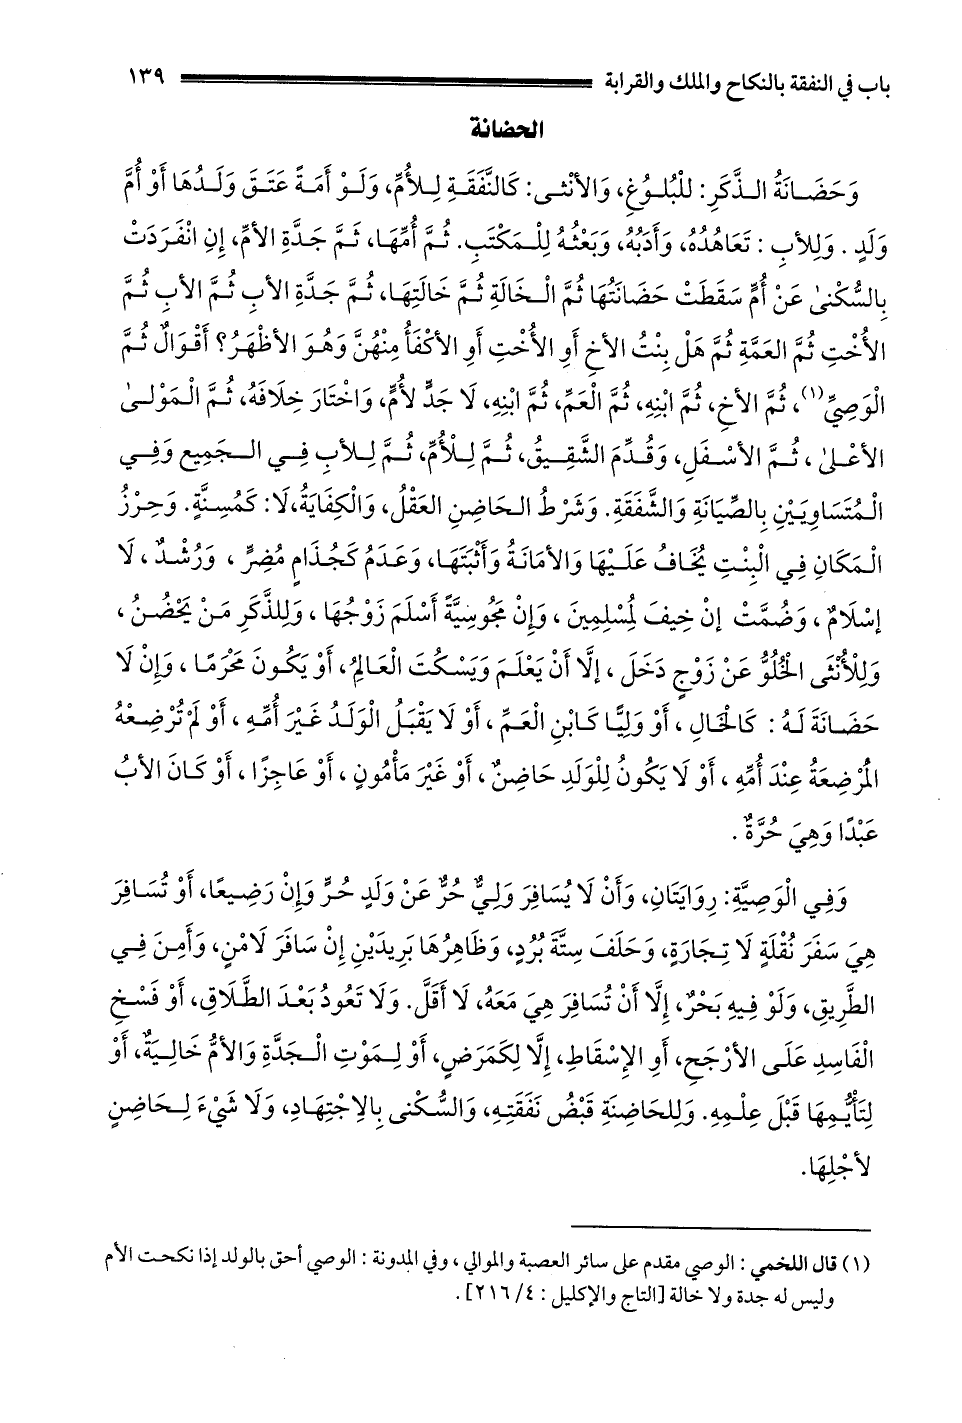 باب في النفقة بالنكاح والملك والقرابة ١٣٩
الحضانة
وَحَضَانَةُ الذَّكَرِ: لِلْبُلُوغِ، وَالأُنْثى: كَالنَّفَقَةِ لِلأُمِّ، وَلَوْ أَمَةً عَتَقَ وَلَدُهَا أَوْ أُمَّ
وَلَدٍ. وَلِلأَبِ: تَعَاهُدُهُ، وَأَدَبُهُ، وَبَعْثُهُ لِلْمَكْتَبِ. ثُمَّ أُمِّهَا، ثُمَّ جَدَّةِ الأُمِّ، إِنِ انْفَرَدَتْ
بِالسُّكْنىٰ عَنْ أُمٍّ سَقَطَتْ حَضَانَتُهَا ثُمَّ الْخَالَةِ ثُمَّ خَالَتِهَا، ثُمَّ جَدَّةِ الأَبِ ثُمَّ الأَبِ ثُمَّ
الأُخْتِ ثُمَّ العَمَّةِ ثُمَّ هَلْ بِنْتُ الأَخِ أَوِ الأُخْتِ أَوِ الأَكْفَأُ مِنْهُنَّ وَهُوَ الأَظْهَرُ؟ أَقْوَالٌ ثُمَّ
الْوَصِيِّ(١)، ثُمَّ الأَخِ، ثُمَّ ابْنِهِ، ثُمَّ الْعَمِّ، ثُمَّ ابْنِهِ، لَا جَدٍّ لأُمٍّ، وَاخْتَارَ خِلَافَهُ، ثُمَّ الْمَوْلىٰ
الأَعْلىٰ، ثُمَّ الأَسْفَلِ، وَقُدِّمَ الشَّقِيقُ، ثُمَّ لِلْأُمِّ، ثُمَّ لِلأَبِ فِي الْجَمِيعِ وَفِي
الْمُتَسَاوِيَيْنِ بِالصِّيَانَةِ وَالشَّفَقَةِ. وَشَرْطُ الحَاضِنِ العَقْلُ، وَالْكِفَايَةُ،لَا: كَمُسِنَّةٍ. وَحِرْزُ
الْمَكَانِ فِي الْبِنْتِ يُخَافُ عَلَيْهَا وَالأَمَانَةُ وَأَثْبَتَهَا، وَعَدَمُ كَجُذَامٍ مُضِرٍّ، وَرُشْدٌ، لَا
إِسْلَامٌ، وَضُمَّتْ إنْ خِيفَ لِمُسْلِمِينَ، وَإِنْ مَجُوسِيَّةً أَسْلَمَ زَوْجُهَا، وَلِلذَّكَرِ مَنْ يَحْضُنُ،
وَلِلْأُنْثَى الْخُلُوُّ عَنْ زَوْجٍ دَخَلَ، إلَّا أَنْ يَعْلَمَ وَيَسْكُتَ الْعَامَ، أَوْ يَكُونَ مَحْرَمًا، وَإِنْ لَا
حَضَانَةَ لَهُ: كَالْخَالِ، أَوْ وَلِيًّا كَابْنِ الْعَمِّ، أَوْ لَا يَقْبَلُ الْوَلَدُ غَيْرَ أُمِّهِ، أَوْ لَمْ تُرْضِعْهُ
الْمُرْضِعَةُ عِنْدَ أُمِّهِ، أَوْ لَا يَكُونُ لِلْوَلَدِ حَاضِنٌ، أَوْ غَيْرَ مَأْمُونٍ، أَوْ عَاجِزًا، أَوْ كَانَ الأَبُ
عَبْدًا وَهِيَ حُرَّةٌ.
وَفِي الْوَصِيَّةِ: رِوَايَتَانِ، وَأَنْ لَا يُسَافِرَ وَلِيٌّ حُرٌّ عَنْ وَلَدٍ حُرٍّ وَإِنْ رَضِيعًا، أَوْ تُسَافِرَ
هِيَ سَفَرَ نُقْلَةٍ لَا تِجَارَةٍ، وَحَلَفَ سِتَّةَ بُرُدٍ، وَظَاهِرُهَا بَرِيدَيْنِ إِنْ سَافَرَ لأَمْنٍ، وَأَمِنَ فِي
الطَّرِيقِ، وَلَوْ فِيهِ بَحْرٌ، إِلَّا أَنْ تُسَافِرَ هِيَ مَعَهُ، لَا أَقَلَّ. وَلَا تَعُودُ بَعْدَ الطَّلَاقِ، أَوْ فَسْخِ
الْفَاسِدِ عَلَى الأَرْجَحِ، أَوِ الإِسْقَاطِ، إِلَّا لِكَمَرَضٍ، أَوْ لِمَوْتِ الْجَدَّةِ وَالأُمُّ خَالِيَةٌ، أَوْ
لِتَأَيُّمِهَا قَبْلَ عِلْمِهِ. وَلِلحَاضِنَةِ قَبْضُ نَفَقَتِهِ، وَالسُّكْنى بِالِاجْتِهَادِ، وَلَا شَيْءَ لِحَاضِنٍ
لأَجْلِهَا.
(١) قال اللخمي: الوصي مقدم على سائر العصبة والموالي، وفي المدونة: الوصي أحق بالولد إذا نكحت الأم
وليس له جدة ولا خالة [التاج والإكليل: ٤/ ٢١٦].